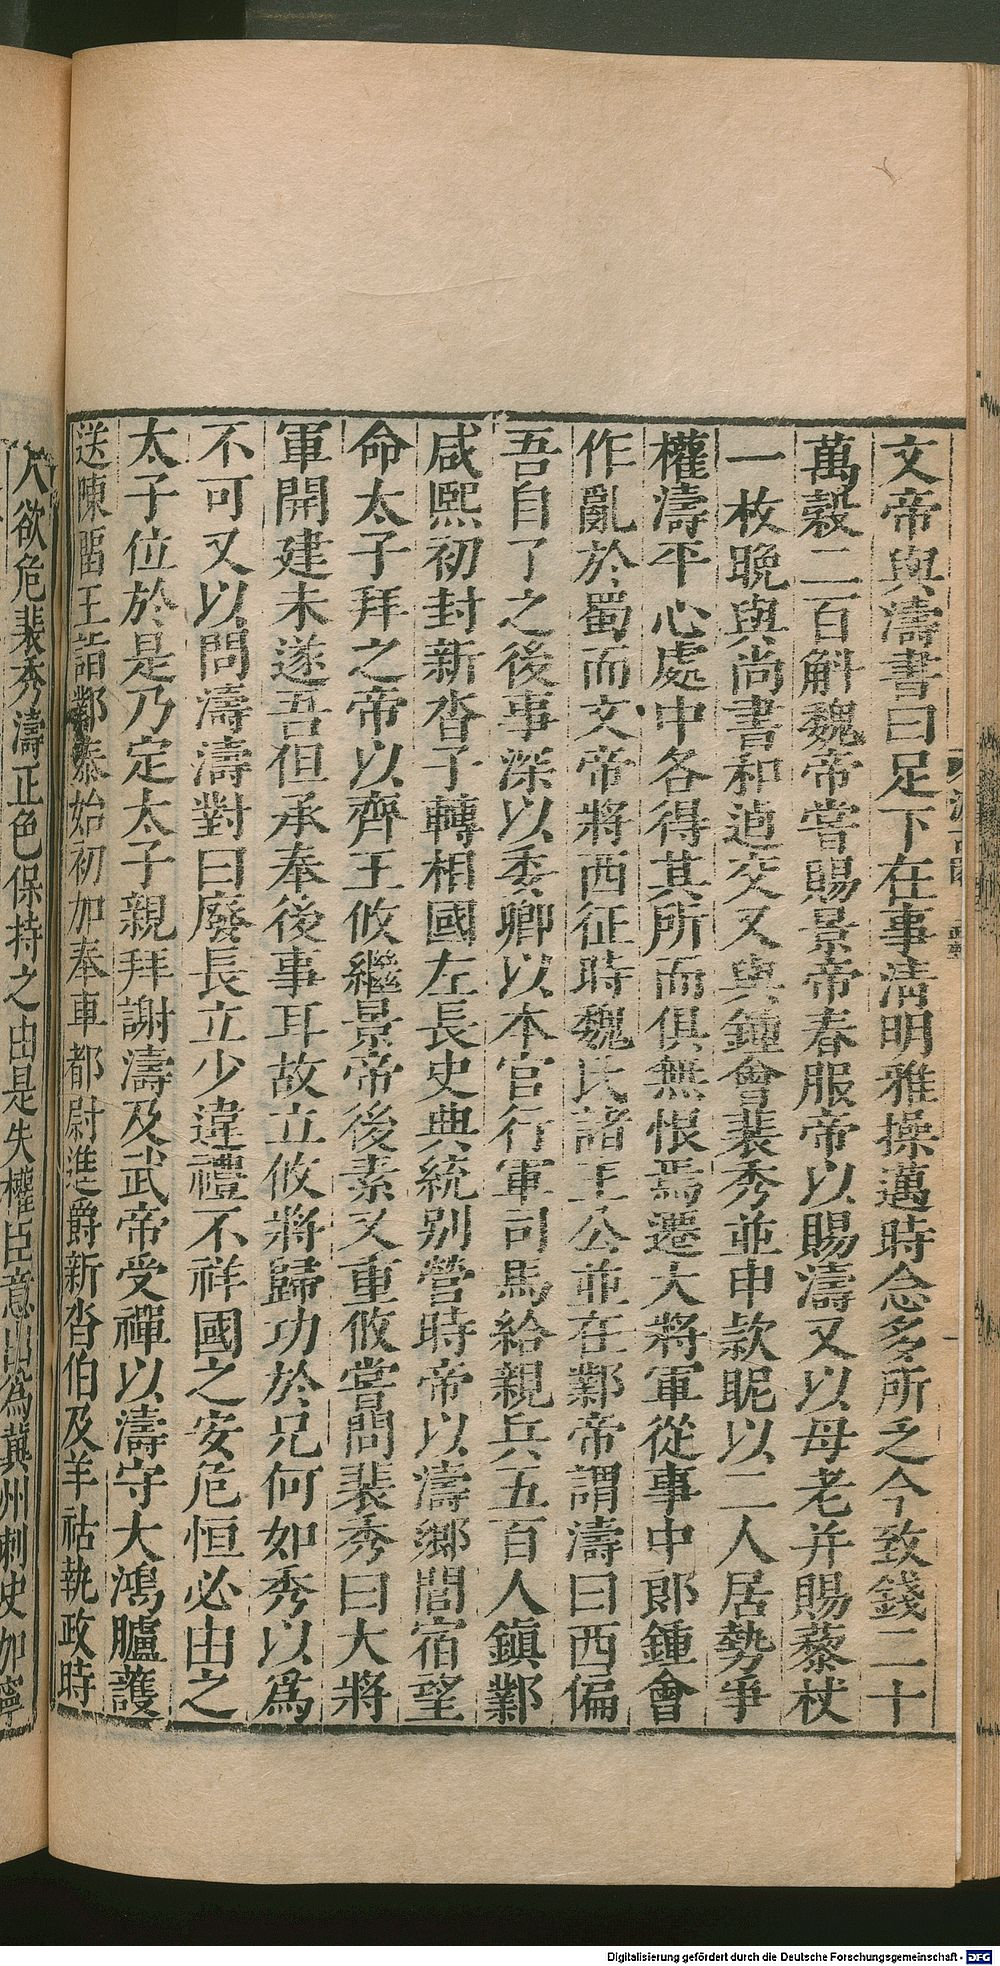 文帝與濤書曰足下在事清明雅操邁時念多所乏今致錢二十
萬穀二百斛魏帝嘗賜景帝春服帝以賜濤又以母老并賜藜杖
一枚晚與尚書和逌交又與鍾會裴秀並申款昵以二人居勢爭
權濤平心處中各得其所而俱無恨焉遷大將軍從事中郎鍾會
作亂於蜀而文帝將西征時魏氏諸王公並在鄴帝謂濤曰西偏
吾自了之後事深以委卿以本官行軍司馬給親兵五百人鎮鄴
咸熙初封新沓子轉相國左長史典統别營時帝以濤鄉閭宿望
命太子拜之帝以齊王攸繼景帝後素又重攸嘗問裴秀曰大將
軍開建未遂吾但承奉後事耳故立攸將歸功於兄何如秀以爲
不可又以問濤濤對曰廢長立少違禮不祥國之安危恒必由之
太子位於是乃定太子親拜謝濤及武帝受禪以濤守大鴻臚護
送陳留王詣鄴泰始初加奉車都尉進爵新沓伯及羊祜執政時
人欲危裴秀濤正色保持之由是失權臣意出為冀州刺史加寧
Digitalisierung gefördert durch die Deutsche Forschungsgemeinschaft - DFG